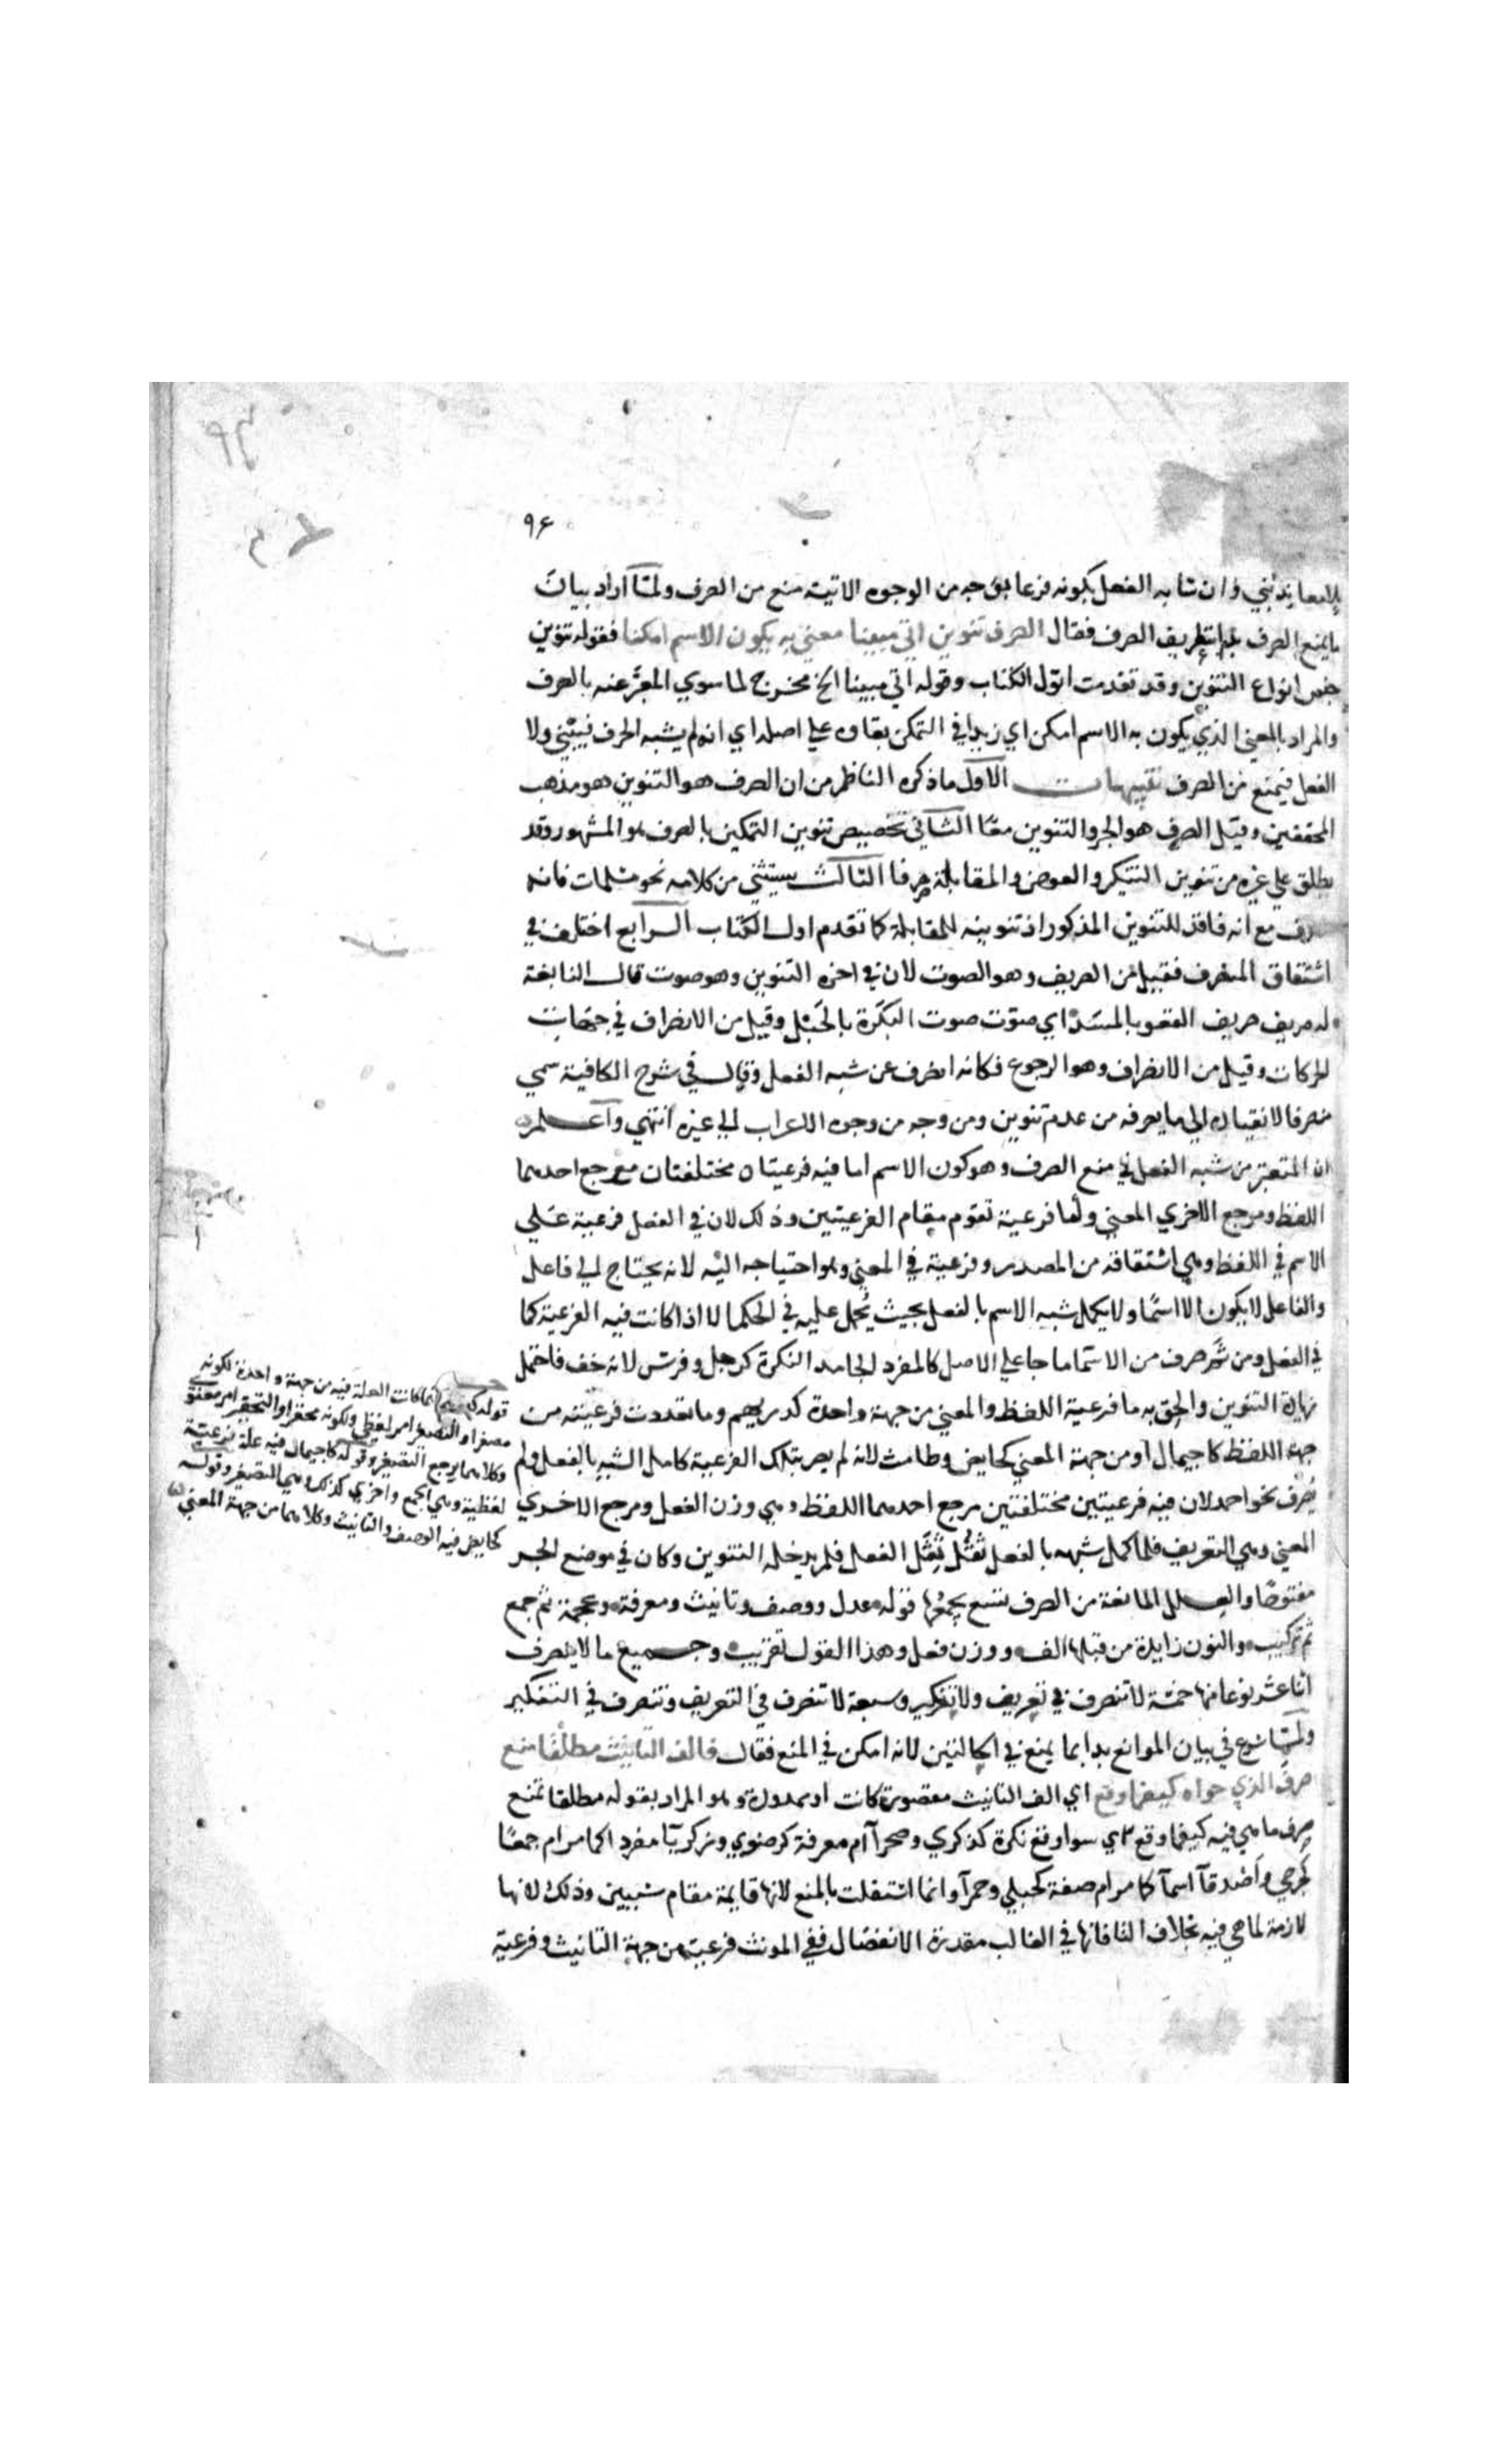 ٩٤
بلا معاند بُني وان شابه الفعل بكونه فرعا بوجه من الوجوه الاتية منع من الصرف ولمّا اراد بيان
ما يمنع الصرف بدا بتعريف الصرف فقال الصرف تنوين اتى مبينا معنى به يكون الاسم امكنا فقوله تنوين
جنس انواع التنوين وقد تقدمت اوّل الكتاب وقوله اتى مبينا الخ مخرج لما سوي المعبَّر عنه بالصرف
والمراد بالمعنى الذي يكون به الاسم امكن اي زيدا في التمكن بقاوه على اصله اي انه لم يشبه الحرف فيبني ولا
الفعل فيمنع من الصرف تنبيهات الاول ما ذكره الناظم من ان الصرف هو التنوين هو مذهب
المحققين وقيل الصرف هو الجر والتنوين معًا الثاني تخصيص تنوين التمكين بالصرف هو المشهور وقد
يطلق على غيره من تنوين التنكير والعوض والمقابلة صرفا الثالث يستثني من كلامه نحو مسلمات فانه
منصرف مع انه فاقد للتنوين المذكور اذ تنوينه للمقابلة كما تقدم اول الكتاب الرابع اختلف في
اشتقاق المنصرف فقيل من الصريف وهو الصوت لان في اخره التنوين وهو صوت قال النابغة
له صريف صريف القعو بالمسَد اي صوّت صوت البكَرة بالحَبْل وقيل من الانصراف في جهات
الحركات وقيل من الانصراف وهو الرجوع فكانه انصرف عن شبه الفعل وقال في شرح الكافية سمي
منصرفا لانقياده الى ما يصرفه من عدم تنوين ومن وجه من وجوه الاعراب الى غيره انتهي واعلم
ان المعتبر من شبه الفعل في منع الصرف وهو كون الاسم اما فيه فرعيتان مختلفتان مرجع احدهما
اللفظ ومرجع الاخري المعنى واما فرعية تقوم مقام الفرعيتين وذلك لان في الفعل فرعية على
الاسم في اللفظ وهي اشتقاقه من المصدر وفرعية في المعنى وهو احتياجه اليه لانه يحتاج الى فاعل
والفاعل لا يكون الا اسمًا ولا يكمل شبه الاسم بالفعل بحيث يُحمل عليه في الحكم الا اذا كانت فيه الفرعية كما
في الفعل ومن ثَمَّ صرف من الاسما ما جا على الاصل كالمفرد الجامد النكرة كرجل وفرس لانه خف فاحتمل
زيادة التنوين والحق به ما فرعية اللفظ والمعنى من جهة واحدة كدريهم وما تعددت فرعيته من
جهة اللفظ كاجيمال او من جهة المعنى كحايض وطامث لانه لم يصر بتلك الفرعية كامل الشبه بالفعل ولم
يُصرف نحو احمد لان فيه فرعيتين مختلفتين مرجع احدهما اللفظ وهي وزن الفعل ومرجع الاخري
المعنى وهي التعريف فلما كمل شبهه بالفعل ثَقُل ثِقَل الفعل فلم يدخله التنوين وكان في موضع الجر
مفتوحًا والعلل المانعة من الصرف تسع يجمعها قوله عدل ووصف وتانيث ومعرفة وعجمة ثم جمع
ثم تركيب والنون زايدة من قبلها الف ووزن فعل وهذا القول تقريب وجميع ما لا ينصرف
اثنا عشر نوعا منها خمسة لا تنصرف في تعريف ولا تنكير وسبعة لا تنصرف في التعريف وتنصرف في التنكير
ولمّا شرع في بيان الموانع بدا بما يمنع في الحالتين لانه امكن في المنع فقال فالف التانيث مطلقًا منع
صرف الذي حواه كيفما وقع اي الف التانيث مقصورة كانت او ممدودة وهو المراد بقوله مطلقا تمنع
صرف ما هي فيه كيفما وقع اي سوا وقع نكرة كذكري وصحرآ ام معرفة كرضوي وزكريّا مفردا كما مر ام جمعًا
كجرحي واَصْدقآ اسمآ كما مر ام صفة كحبلي وحمرآ وانما استقلت بالمنع لانها قايمة مقام شيين وذلك لانها
لازمة لما هي فيه بخلاف التا فانها في الغالب مقدرة الانفصال ففي المونث فرعية من جهة التانيث وفرعية
قوله كدريهم انما كانت العلة فيه من جهة واحدة لكونه
مصغرا والتصغير امر لفظي ولكونه محقرا والتحقير امر معنوي
وكلاهما يرجع التصغير وقوله كاجيمال فيه علة فرعية
لفظية وهي الجمع واخري كذلك وهي التصغير وقوله
كحايض فيه الوصف والتانيث وكلاهما من جهة المعنى